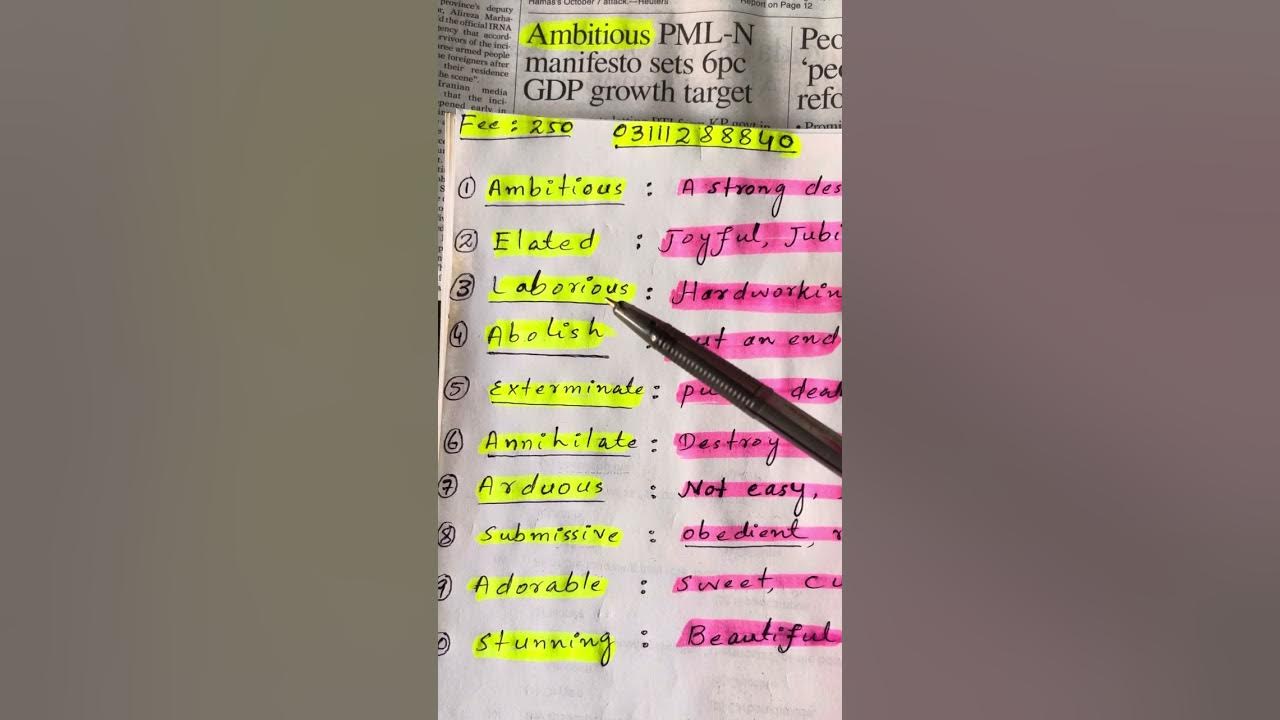 province's deputy
r, Alireza Marha-
d the official IRNA
ency that accord-
rvivors of the inci-
ree armed people
e foreigners after
their residence
he scene".
Iranian media
that the inci-
pened early in
Hamas's October 7 attack.—Reuters
Report on Page 12
Ambitious PML-N
manifesto sets 6pc
GDP growth target
Peo
'peo
refo
• Promi
Fee: 250 03111288840
① Ambitious : A strong des
② Elated : Joyful, Jubi
③ Laborious : Hardworkin
④ Abolish : put an end
⑤ Exterminate : pu dea
⑥ Annihilate : Destroy
⑦ Arduous : Not easy,
⑧ Submissive : obedient,
9 Adorable : Sweet, cu
0 Stunning : Beautiful